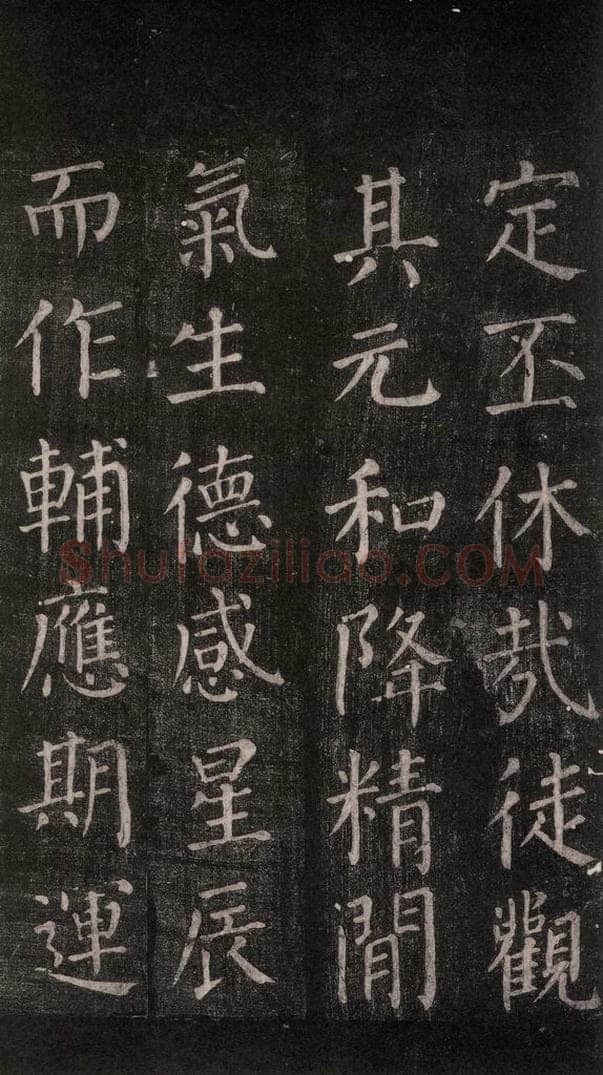 定丕休哉徒觀
其元和降精閒
氣生德感星辰
而作輔應期運
Shufaziliao.COM